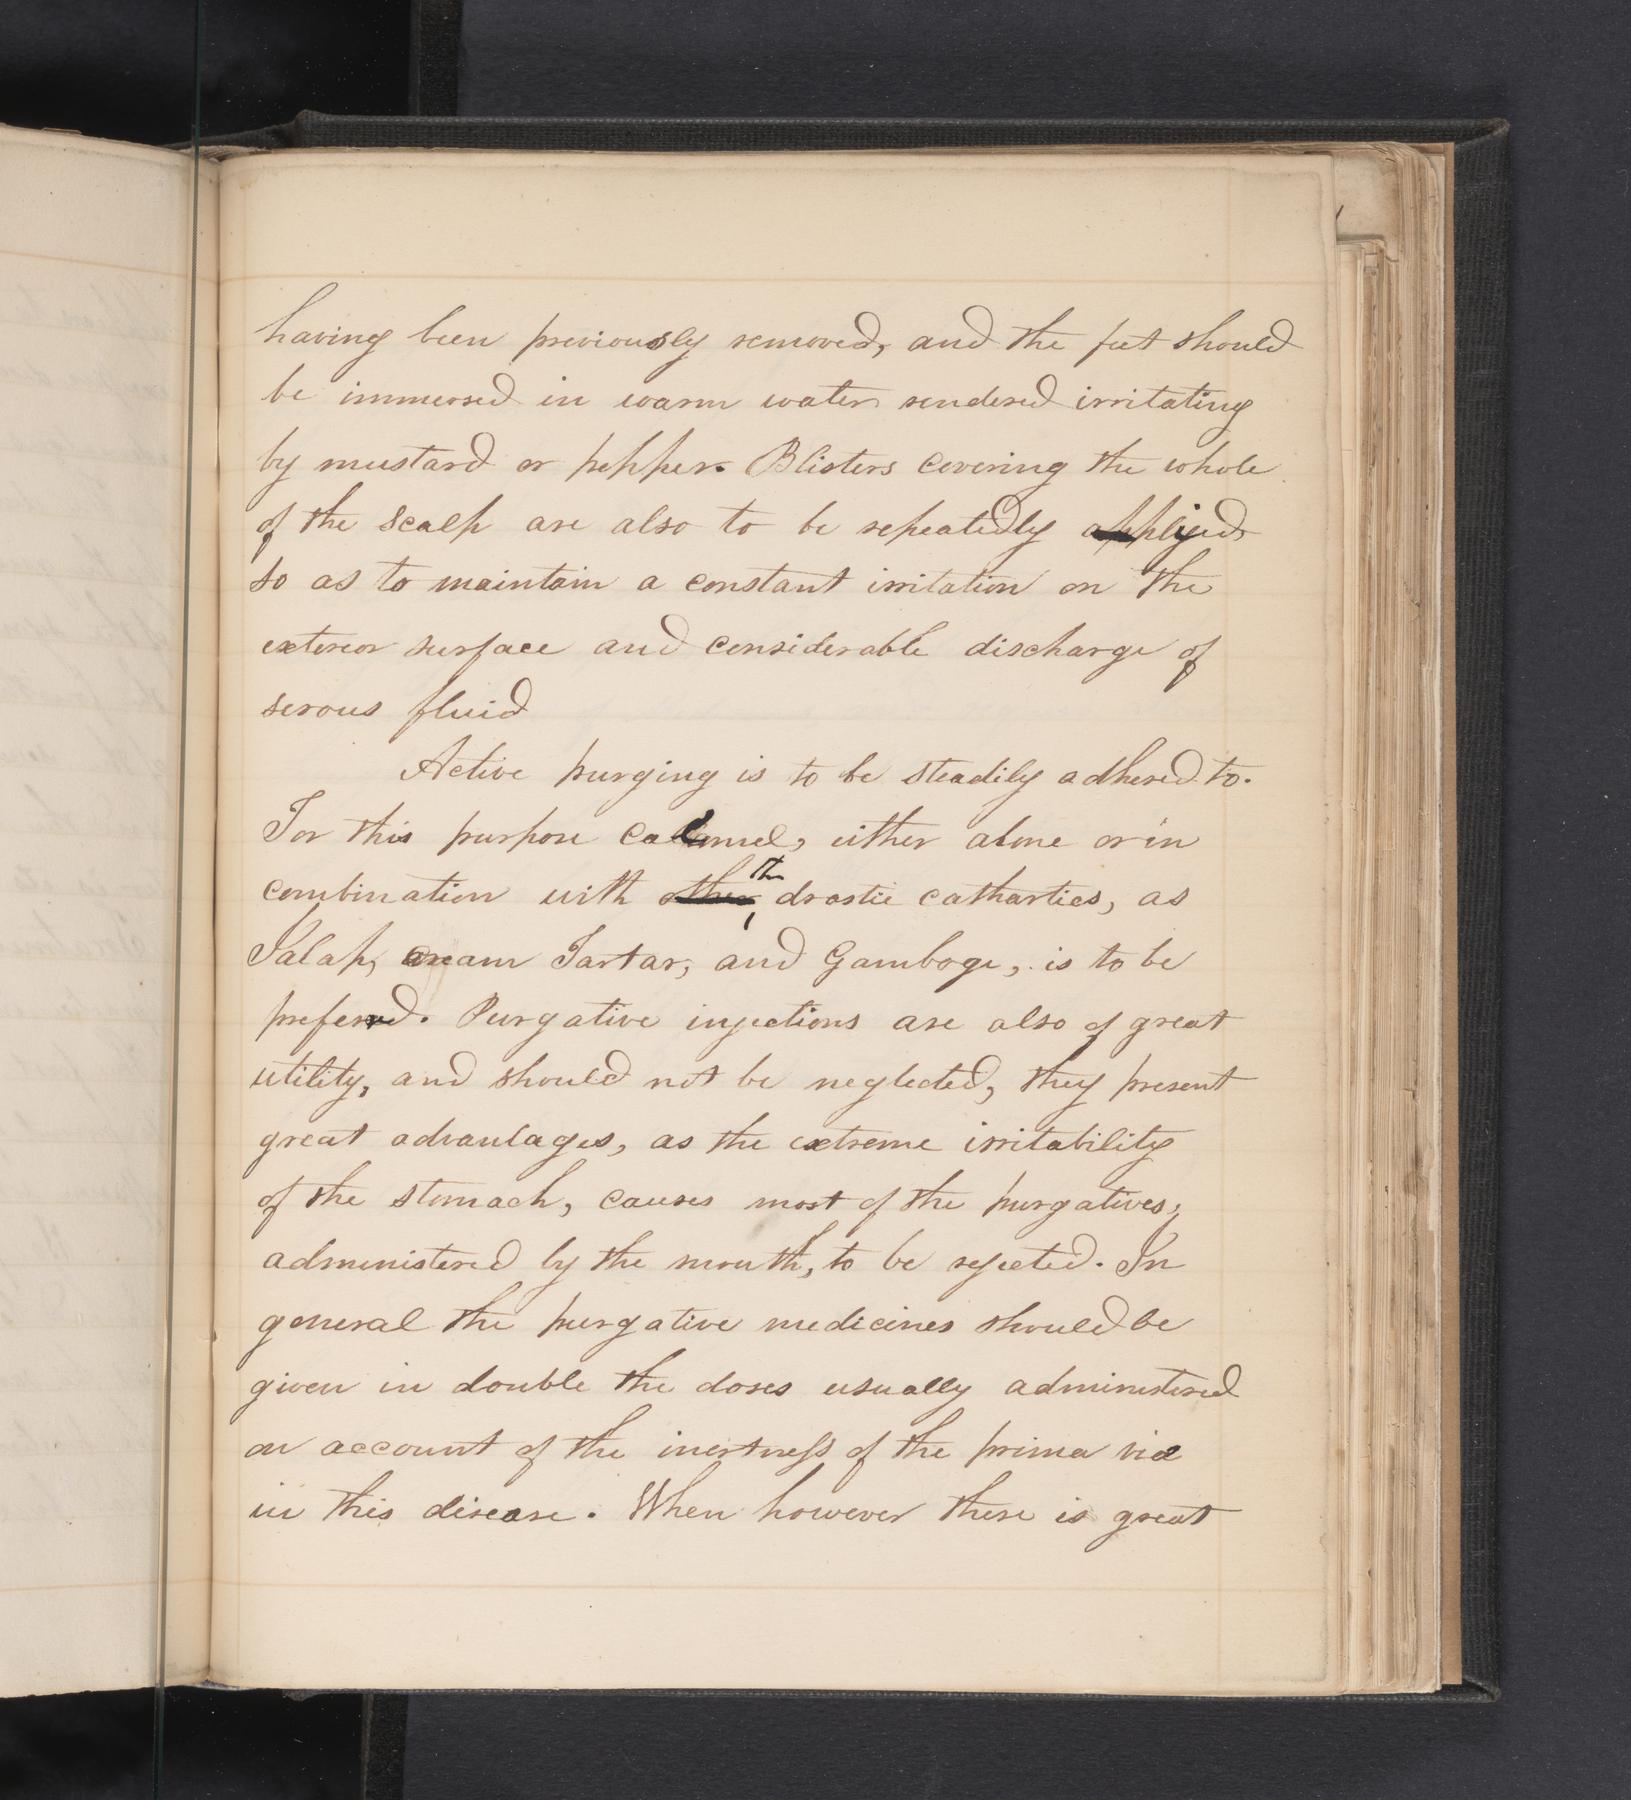 having been previously removed, and the feet should
be immersed in warm water rendered irritating
by mustard or pepper. Blisters covering the whole
of the scalp are also to be repeatedly applied,
so as to maintain a constant irritation on the
exterior surface and considerable discharge of
serous fluid
Active purging is to be steadily adhered to.
For this purpose calomel, either alone or in
the
combination with other drastic cathartics, as
Jalap, cream Tartar, and Gamboge, is to be
preferred. Purgative injections are also of great
utility, and should not be neglected, they present
great advantages, as the extreme irritability
of the stomach, causes most of the purgatives,
administered by the mouth, to be rejected. In
general the purgative medicines should be
given in double the doses usually administered
on account of the inertness of the prima via
in this disease. When however there is great